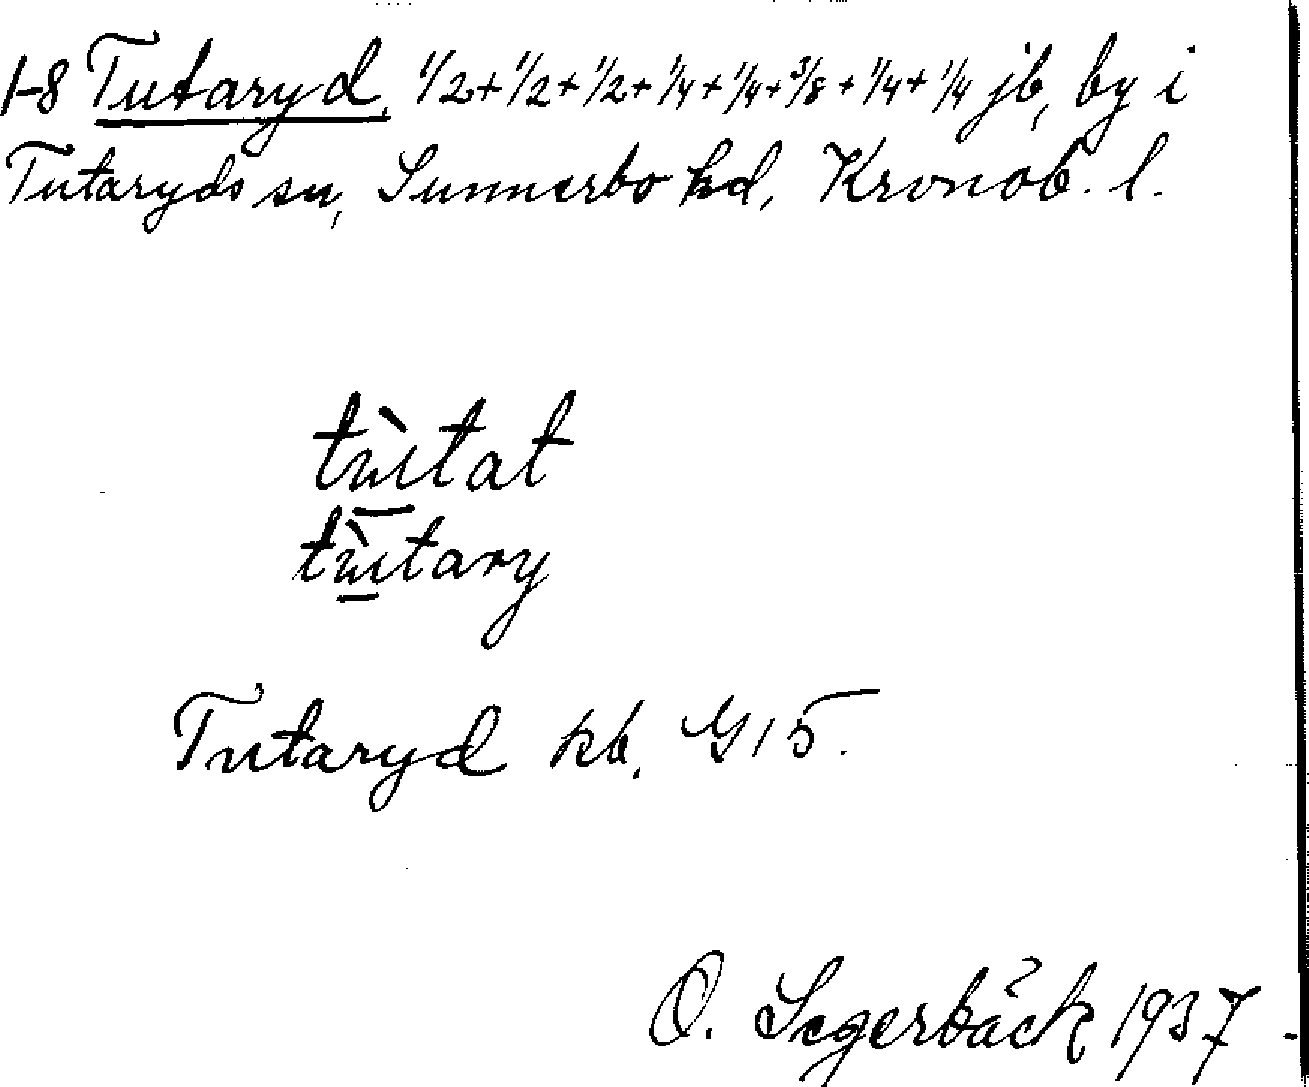 1-8 Tutaryd, 1/2+1/2+1/2+1/4+1/4+3/8+1/4+1/4 jb, by i
Tutaryds sn, Sunnerbo hd, Kronob. l.
tùtat
tùtary
Tutaryd kb. G15.
O. Segerbäck 1937.